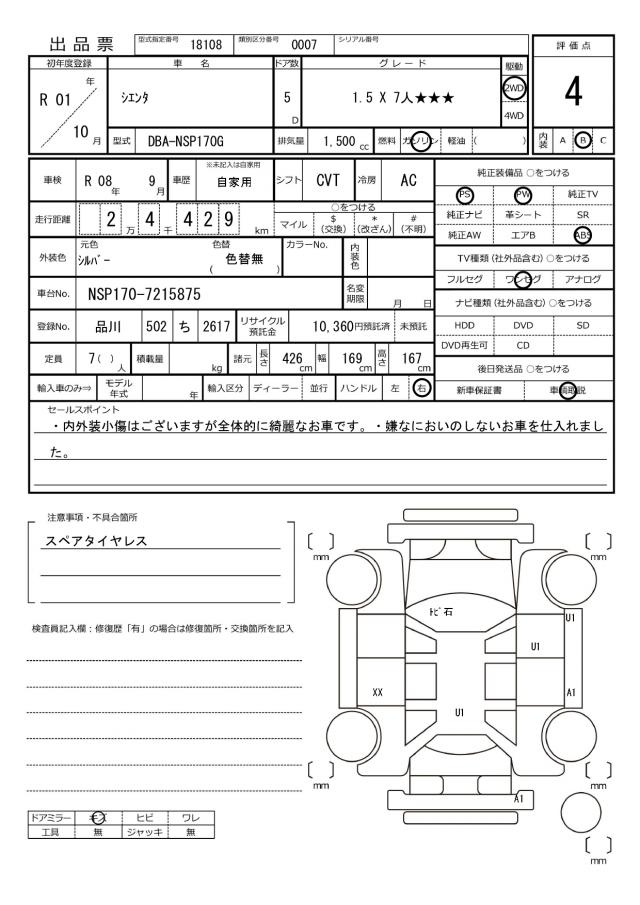 出 品 票 型式指定番号 18108 類別区分番号 0007 シリアル番号
評 価 点
4
内装 A B C
初年度登録 車 名 ドア数 グ レ ー ド 駆動
R 01 年 10 月
シエンタ 5 D 1.5 X 7人★★★ 2WD
4WD
型式 DBA-NSP170G 排気量 1,500 cc 燃料 ガソリン 軽油 ( )
車検 R 08 年 9 月 車歴 ※未記入は自家用 自家用 シフト CVT 冷房 AC
走行距離 2 万 4 千 4 2 9 km ○をつける
マイル $ (交換) * (改ざん) # (不明)
外装色 元色 シルバー 色替 ( 色替無 ) カラーNo. 内装色
車台No. NSP170-7215875 名変期限 月 日
登録No. 品川 502 ち 2617 リサイクル預託金 10,360円預託済 未預託
定員 7( ) 人 積載量 kg 諸元 長さ 426 cm 幅 169 cm 高さ 167 cm
輸入車のみ⇒ モデル年式 年 輸入区分 ディーラー 並行 ハンドル 左 右
純正装備品 ○をつける
PS PW 純正TV
純正ナビ 革シート SR
純正AW エアB ABS
TV種類 (社外品含む) ○をつける
フルセグ ワンセグ アナログ
ナビ種類 (社外品含む) ○をつける
HDD DVD SD
DVD再生可 CD
後日発送品 ○をつける
新車保証書 車輌取説
セールスポイント
・内外装小傷はございますが全体的に綺麗なお車です。・嫌なにおいのしないお車を仕入れまし
た。
注意事項・不具合箇所
スペアタイヤレス
検査員記入欄：修復歴「有」の場合は修復箇所・交換箇所を記入
ドアミラー キズ ヒビ ワレ
工具 無 ジャッキ 無
mm
mm
トビ石
U1
U1
XX
A1
U1
mm
mm
A1
mm